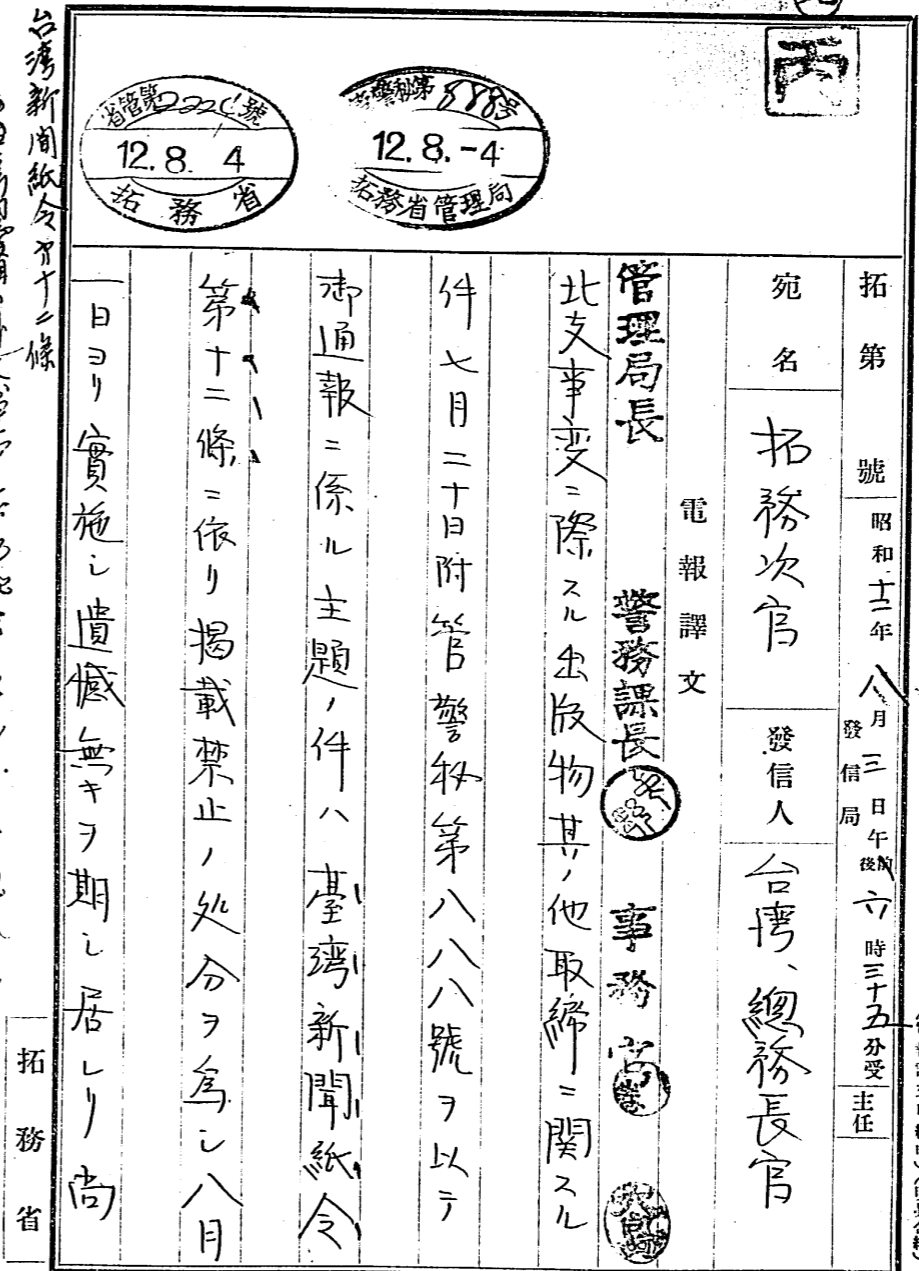 丙
警秘第888号
12.8.-4
拓務省管理局
省管第222号
12.8.4
拓務省
拓第 號 昭和十二年八月三日午後前六時三十五分受 發信局 主任
宛名 拓務次官 發信人 台湾、總務長官
電報譯文
管理局長 警務課長 事務官
北支事変ニ際スル出版物其ノ他取締ニ関スル
件七月二十日附管警秘第八八八號ヲ以テ
御通報ニ係ル主題ノ件ハ臺湾新聞紙令
第十二條ニ依リ掲載禁止ノ処分ヲ為シ八月
一日ヨリ實施シ遺憾無キヲ期シ居レリ尚
台湾新聞紙令第十二條
拓務省